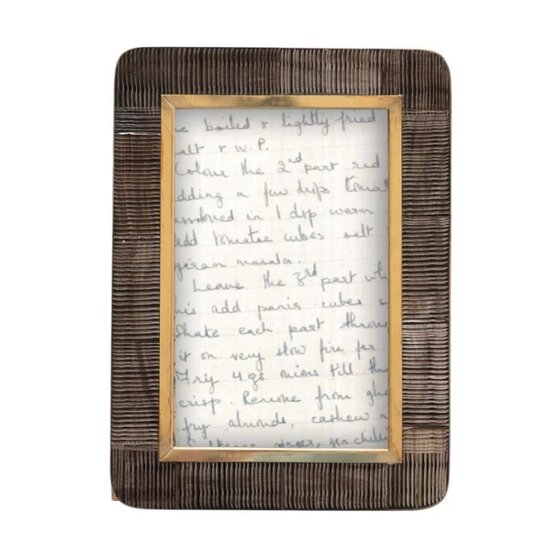 boiled & lightly fried
alt & W.P.
Colour the 2nd part red
dding a few drops tomat
in 1 dsp warm
dd tomatoe cubes salt
garam masala.
Leave the 3rd part whi
us add panir cubes
Shake each part throu
it on very slow fire for
Fry 4 ozs onions till th
crisp. Remove from ghe
fry almonds, cashew n
ginger, gn chilli